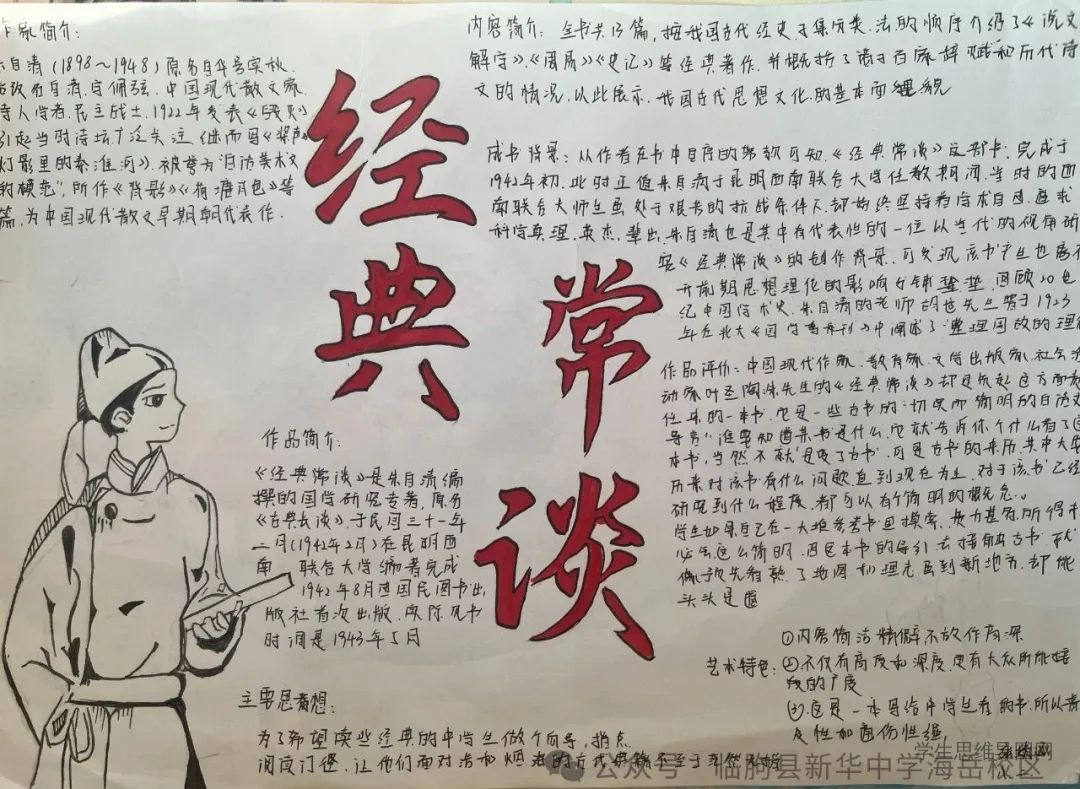 作家简介:
朱自清(1898～1948)原名自华号实秋
改名自清,字佩弦.中国现代散文家
诗人学者民主战士.1922年发表《毁灭》
引起当时诗坛广泛关注.继而写《桨声
灯影里的秦淮河》.被誉为"白话美术文
的模范".所作《背影》《荷塘月色》等
篇,为中国现代散文早期代表作.
经典常谈
内容简介:全书共13篇,按我国古代经史子集分类法的顺序介绍了《说文
解字》.《周易》《史记》等经典著作.并概括了诸子百家辞赋和历代诗
文的情况,以此展示.我国古代思想文化的基本面貌
成书背景:从作者在书中自序的落款可知,《经典常谈》这部书,完成于
1942年初.此时正值朱自清于昆明西南联合大学任教期间.当时的西
南联合大师生虽处于艰苦的抗战条件下,却始终坚持着学术自由,追求
科学真理.英杰辈出.朱自清也是其中有代表性的一位以当代的视角研
究《经典常谈》的创作背景.可发现该书产生也离不
开前期思想理化的影响与铺垫.回顾20世
纪中国学术史.朱自清的老师胡适先生曾于1923
年在北大《国学季刊》中阐述了"整理国故的理
作品评价:中国现代作家.教育家.文学出版家.社会活
动家叶圣陶朱先生的《经典常谈》却是负起这方面责
任来的一本书.它是一些古书的"切实而简明的白话文
导言".谁要知道某书是什么.它就告诉你个什么有了这
本书,当然不就是读了古书.可是古书的来历.其中大要
历来对该书有什么问题直到现在为止.对于该书已经
研究到什么程度.都可以有简明的概念.
学生如果自己在一大堆参考书里摸索.费力甚多所得未
必会这么简明.因这本书的导引去接触古书.就
像预先看熟了地图和理志虽到新地方.却能
头头是道
作品简介:
《经典常谈》是朱自清编
撰的国学研究专著,原名
《古典长谈》.于民国三十一年
二月(1942年2月)在昆明西
南联合大学编著完成
1942年8月由国民图书出
版社首次出版.实际见书
时间是1943年5月
主要思想:
为了希望读些经典的中学生做个向导,指点
阅读门径.让他们面对
艺术特色:①内容简洁精辟不故作高深
②不仅有高度和深度更有大众所能接
受的广度
③这是一本写给中学生看的书.所以
公众号·临朐县新华中学海岳校区